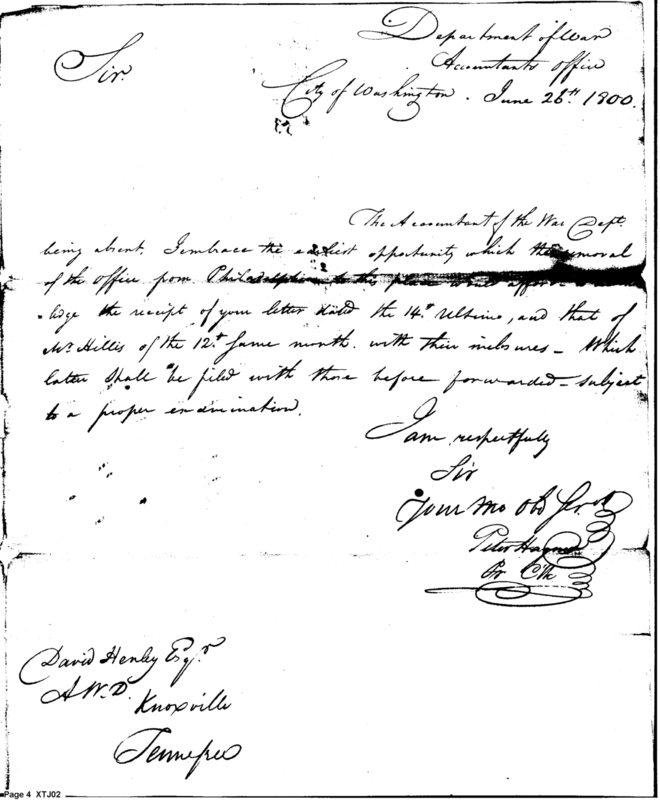 Department of War
Accountants office
Sir.
City of Washington. June 26th. 1800.
The Accountant of the War Dept.
being absent. I embrace the earliest opportunity which the removal
of the office from Philadelphia to this place
ledge the receipt of your letter dated the 14th. Ultimo, and that of
Mr. Hillis of the 12th. Same month. with their inclosures - Which
latter shall be filed with those before forwarded - subject
to a proper examination.
I am respectfully
Sir
Your Mo Obd Servt
Peter Hagner
Pr Clk
David Henley Esqr.
A W. D.
Knoxville
Tennessee
Page 4 XTJ02